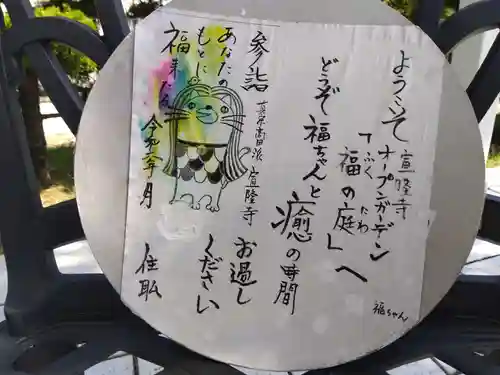 ようこそ宣隆寺
オープンガーデン
「福の庭」へ
ふく にわ
どうぞ福ちゃんと癒の時間
お過し
ください
福ちゃん
参詣
真宗高田派 宣隆寺
あなたの
もとに
福来たる
令和 年 月
住職